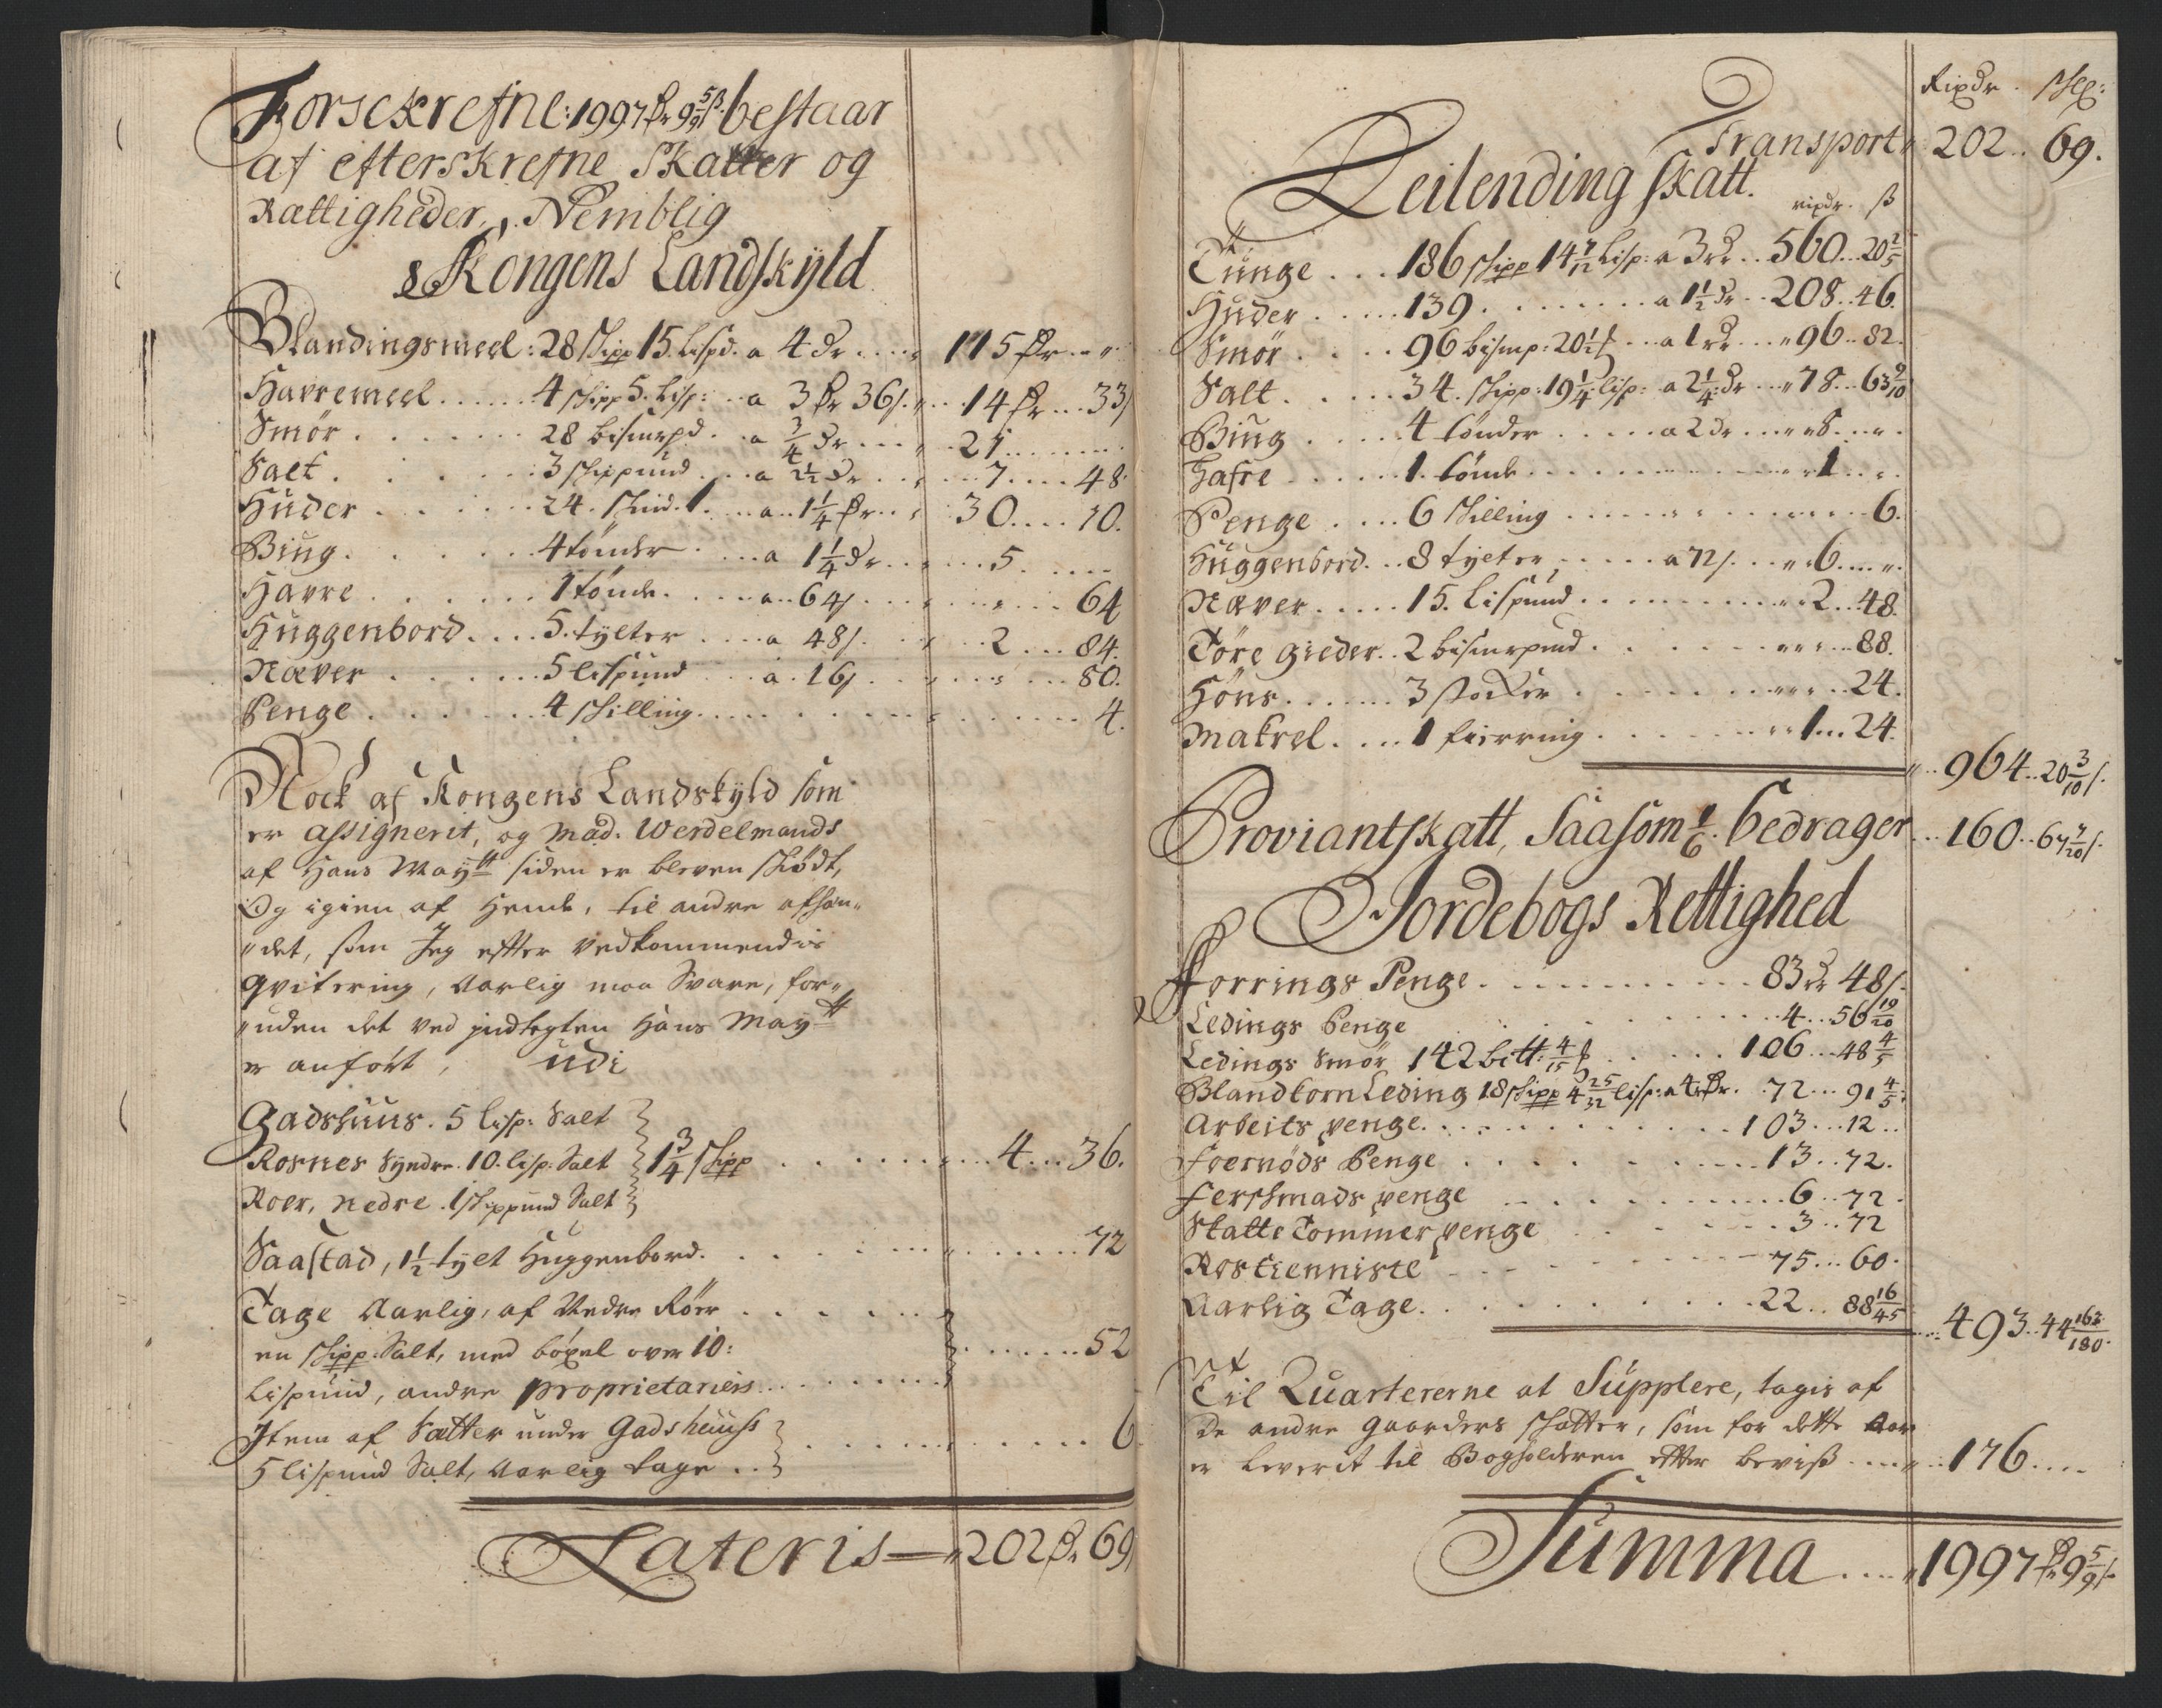 Forsckrefne: 1997 Dr 9 5/9 ß bestaar
af efterskrefne Skatter og
Rættigheder, Nemblig
Kongens Landskyld
Blandingsmeel: 28 skipp 15. Lispd. a 4 Dr .... 115 Dr .. "
Havremeel ...... 4 skipp 5. Lisp: .. a 3 Dr 36 s. .. 14 Dr ... 33 s
Smör ....... 28 bismrpd. .. a 3/4 Dr .... 21 .......
Salt ....... 3 skippund ... a 2 1/2 Dr ..... 7 .... 48
Huder ...... 24. skind. 1. ... a 1 1/4 Dr .. 30 .... 10.
Biug ....... 4 tønder ... a 1 1/4 Dr ..... 5 .....
Havre ...... 1 tønde. ... a .. 64 s. ....... 64
Huggenbord .... 5. tylter ... a 48 s. .... 2 ... 84.
Næver ...... 5 Lispund ... a . 16 s ....... 80.
Penge ...... 4 skilling ........... 4.
Nock af Kongens Landskyld som
er assignerit, og Mad. Werdelmands
af Hans Maytt siden er bleven skiødt,
Og igien af Hende, til andre afhæn-
"det, som Jeg efter vedkommendis
qvitering, Aarlig maa Svare, for-
"uden det ved jndtegten Hans Maytt
er anført, udi
Gadshuus. 5 Lisp: Salt
Rosnes Syndre. 10. Lisp: Salt } 1 3/4 skipp ......... 4 ... 36.
Roer, Nedre. 1 skippund Salt
Saastad, 1 1/2 tylt Huggenbord. ......... 72
Tage Aarlig, af Nedre Röer ......
en skipp: Salt, med böxel over 10: ........ 52
Lispund, andre proprietariers .......
Item af Sætter under Gadshuuss
5 Lispund Salt, Aarlig tage .. } ........ 6
Lateris — 202 Dr 69
Rixdr. skl:
Transport 202 .. 69.
Leilending skatt. rixdr. ß
Tunge ... 186 skipp 14 7/12 Lisp: a 3 Dr .. 560 .. 20 2/5
Huder ..... 139. ........ a 1 1/2 Dr .. 208 .. 46.
Smör .... 96 bismp: 20 1/2 ... a 1 Dr .. " 96 .. 82.
Salt ..... 34. skipp: 19 1/4 Lisp: a 2 1/4 Dr .. " 78 .. 63 9/10
Biug ..... 4 tønder ..... a 2 Dr ... " 8 ... "
Hafre ..... 1. tønde ............ 1 .. "
Penge .... 6 skilling ............ 6.
Huggenbord .. 8 tylter, ..... a 72 s. .. " 6 .... "
Næver ..... 15. Lispund .......... 2 .. 48.
Töre gieder .. 2 bismrpund .......... 88.
Höns ...... 3 stocker ............ 24.
Makrel .... 1 fierring ......... 1 ... 24.
.. 964 .. 20 3/10 s.
Proviantskatt, Saasom 1/6. bedrager ... 160 .. 67 7/20 s.
Jordebogs Rettighed
Forrings Penge ........... 83 Dr 48 s.
Ledings Penge ........ 4 .. 56 19/20
Ledings Smör 142 bitt: 4/15 ...... 106 ... 48 4/5
Blandkorn Leding 18 skipp 4 25/32 Lisp: a 4 Dr. . 72 ... 91 4/5
Arbeits penge ........... 103 ... 12 ..
Foernöds Penge ........ 13 .. 72.
Ferskmads penge ......... 6 .. 72 .
Skatte Tommer penge ..... 3 .. 72
Rostienniste ........ 75 ... 60.
Aarlig Tage .......... 22 .. 88 16/45
... 493 .. 44 163/180.
Til Quartererne at Supplere, tagis af
De andre gaarders skatter, som for dette Aar
er Leverit til Bogholderen efter beviß ..... 176 ....
Summa .... 1997 Dr 9 5/9 s.